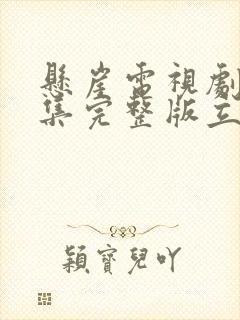 懸崖電視劇
集完整版立
穎寶兒吖